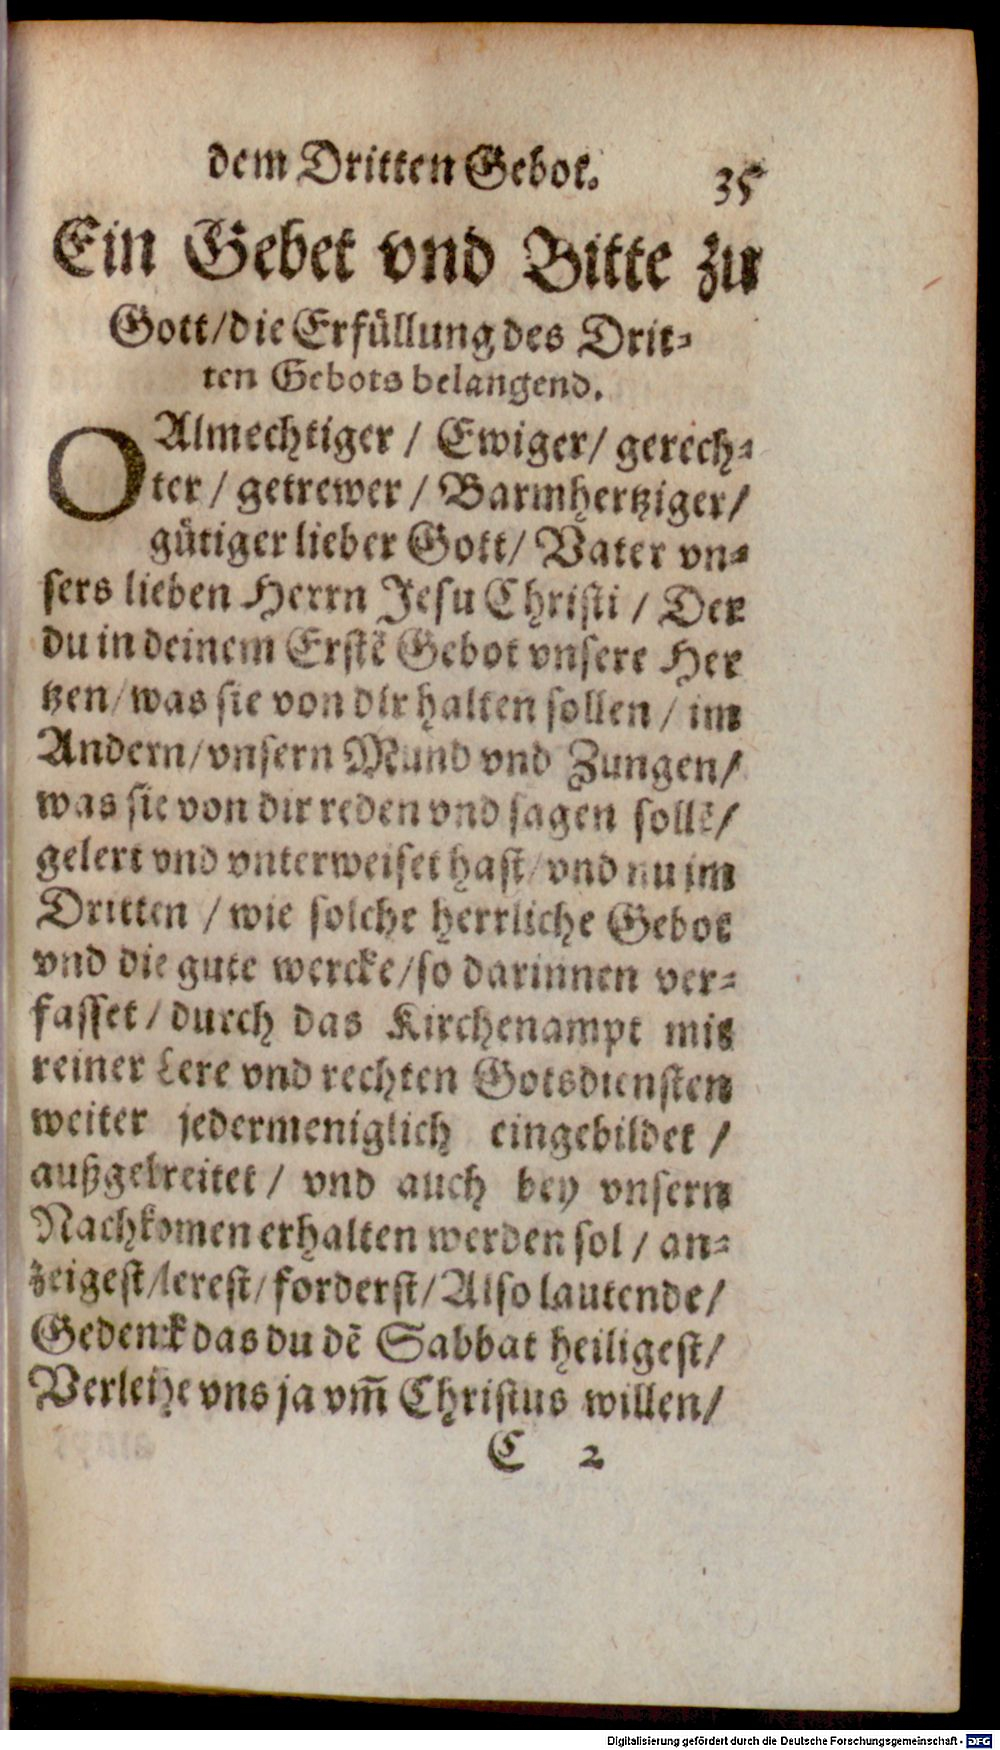 dem Dritten Gebot. 35
Ein Gebet vnd Bitte zu
Gott/die Erfüllung des Drit-
ten Gebots belangend.
O Almechtiger / Ewiger/ gerech-
ter / getrewer / Barmhertziger/
gütiger lieber Gott/ Vater vn-
sers lieben Herrn Jesu Christi / Der
du in deinem Erstē Gebot vnsere Her
tzen/was sie von dir halten sollen / im
Andern/vnsern Mund vnd Zungen/
was sie von dir reden vnd sagen sollē/
gelert vnd vnterweiset hast/vnd nu im
Dritten / wie solche herrliche Gebot
vnd die gute wercke/so darinnen ver-
fasset / durch das Kirchenampt mit
reiner Lere vnd rechten Gotsdiensten
weiter jedermeniglich eingebildet /
außgebreitet / vnd auch bey vnsern
Nachkomen erhalten werden sol / an-
zeigest/lerest/forderst/Also lautende/
Gedenk das du dē Sabbat heiligest/
Verleihe vns ja vm̄ Christus willen/
C 2
Digitalisierung gefördert durch die Deutsche Forschungsgemeinschaft - DFG